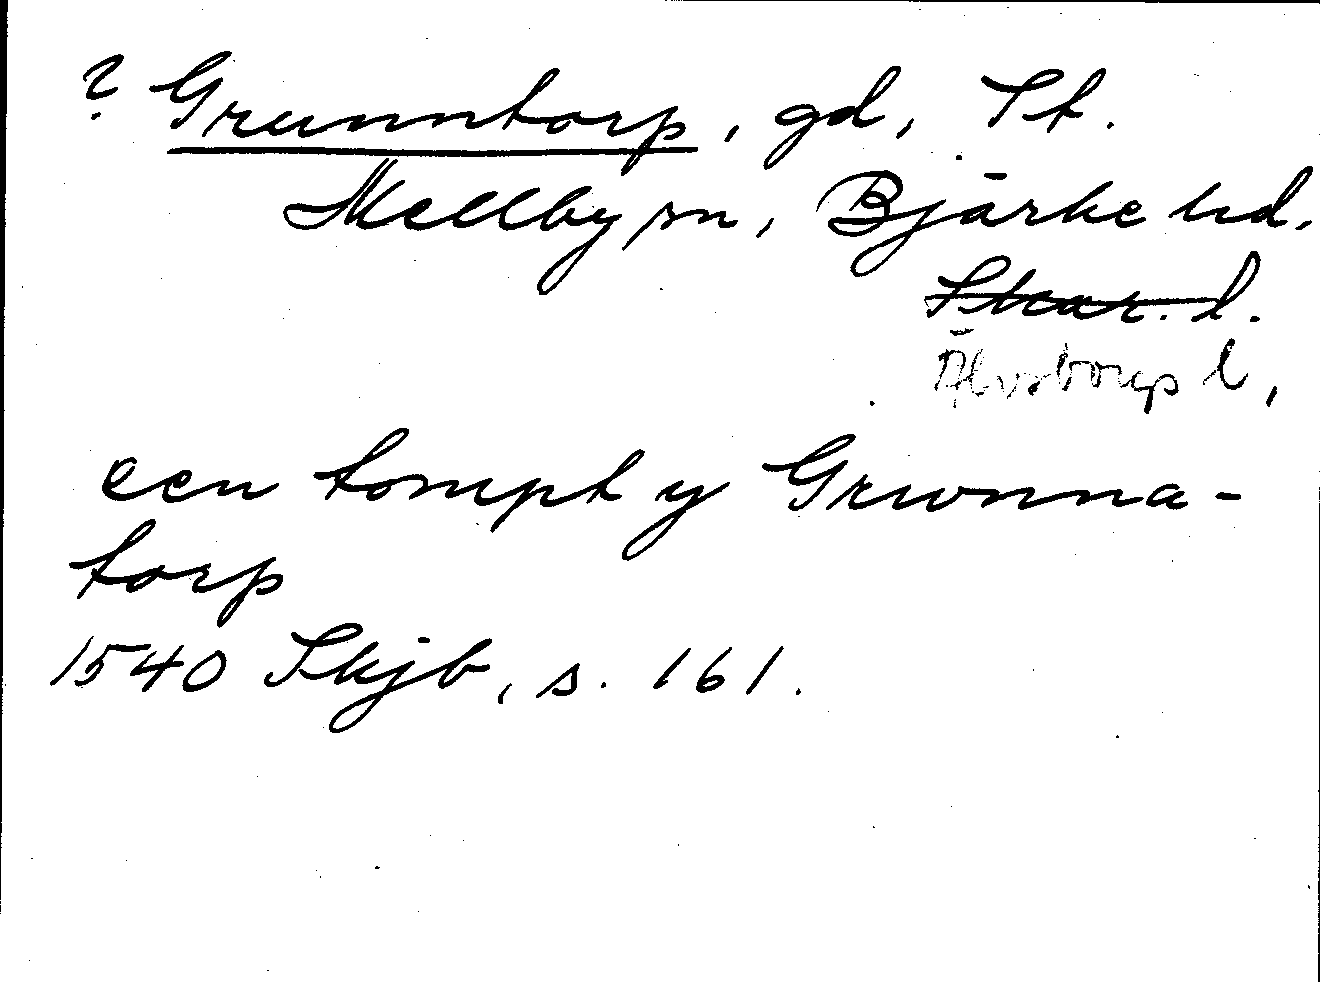 ? Grunntorp, gd, St.
Mellby sn, Bjärke hd,
Skar. l.
Älvsborgs l,
een tompt y Grwnna-
torp
1540 Skjb, s. 161.